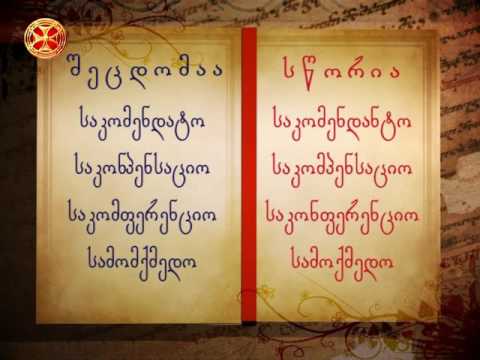 შეცდომაა
საკომენდატო
საკონპენსაციო
საკომფერენციო
სამომქმედო
სწორია
საკომენდანტო
საკომპენსაციო
საკონფერენციო
სამოქმედო